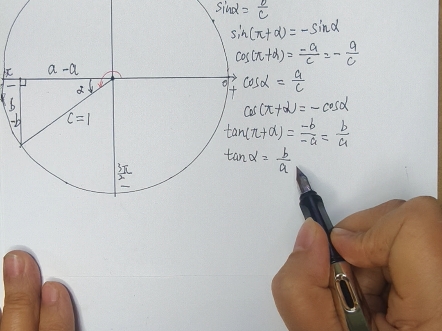 sinα = b/c
sin(π+α) = -sinα
cos(π+α) = -a/c = -a/c
cosα = a/c
cos(π+α) = -cosα
tan(π+α) = -b/-a = b/a
tanα = b/a
a -a
π
0
+
-
b
-b
2
C=1
3π/2
-